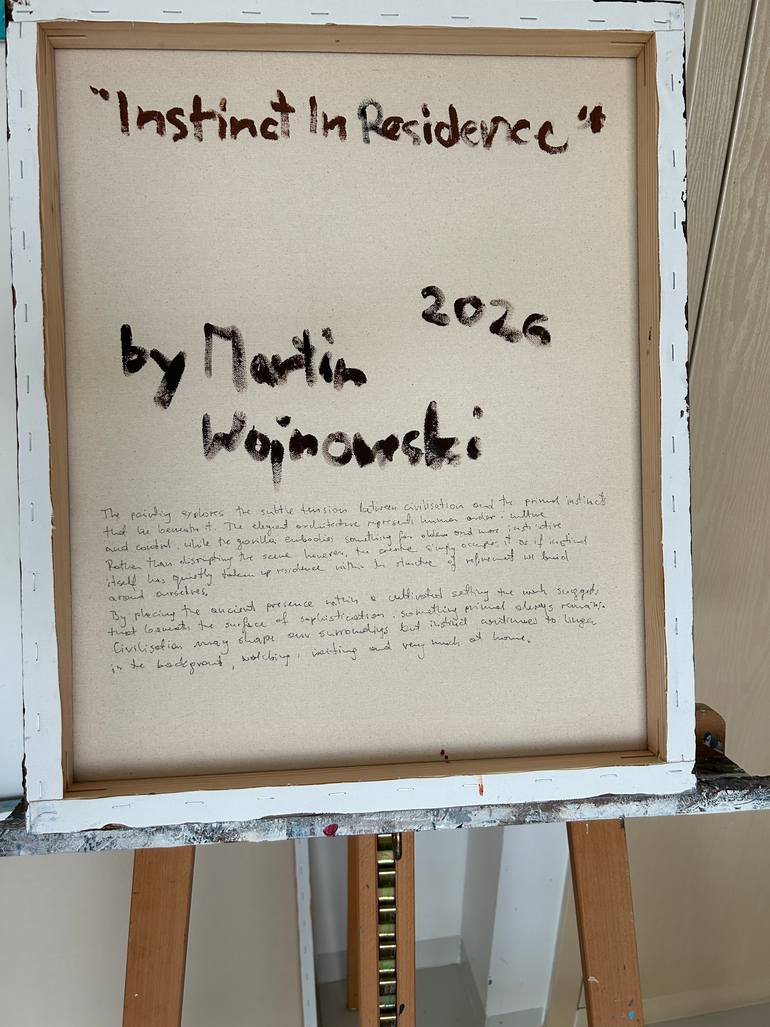 "Instinct In Residence"
2026
by Martin
Wojnowski
The painting explores the subtle tension between civilisation and the primal instincts
that lie beneath it. The elegant architecture represents human order, culture
and control, while the gorilla embodies something far older and more instinctive
Rather than disrupting the scene however, the creature simply occupies it as if instinct
itself has quietly taken up residence within the structure of refinement we build
around ourselves.
By placing the ancient presence within a cultivated setting the work suggests
that beneath the surface of sophistication, something primal always remains.
Civilisation may shape our surroundings but instinct continues to linger
in the background, watching, waiting and very much at home.